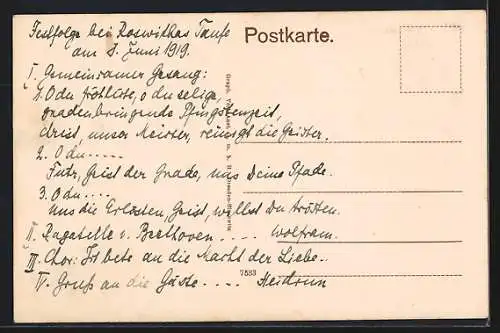 Festfolge bei Roswithas Taufe
am 8. Juni 1919.
Postkarte.
I. Gemeinsamer Gesang:
1. O du fröhliche, o du selige,
gnadenbringende Pfingstenzeit,
Christ, unser Meister, reinigt die Geister.
2. O du .....
Führ, Geist der Gnade, uns Deine Pfade.
3. O du ....
Uns die Erlösten, Geist, willst Du trösten.
II. Bagatelle v. Beethoven .... Wolfram.
III. Chor: Ich bete an die Macht der Liebe.
IV. Gruß an die Gäste .... Heidrun
7583